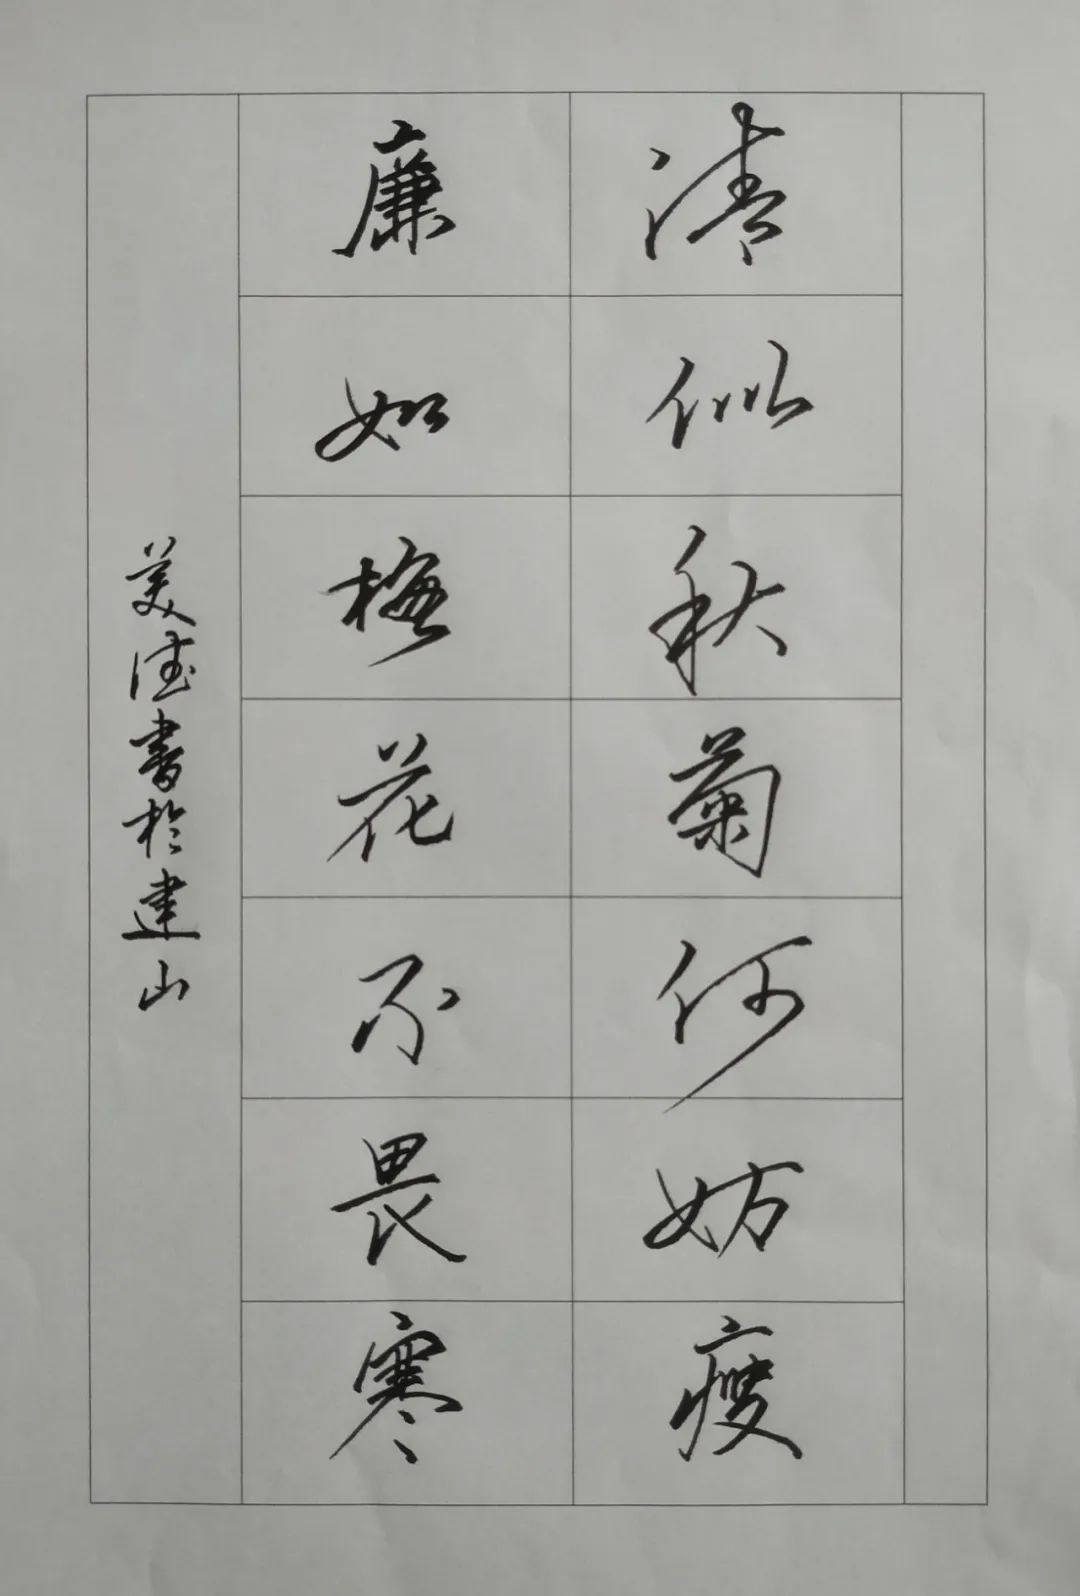 清似秋菊何妨瘦
廉如梅花不畏寒
美法書於建山